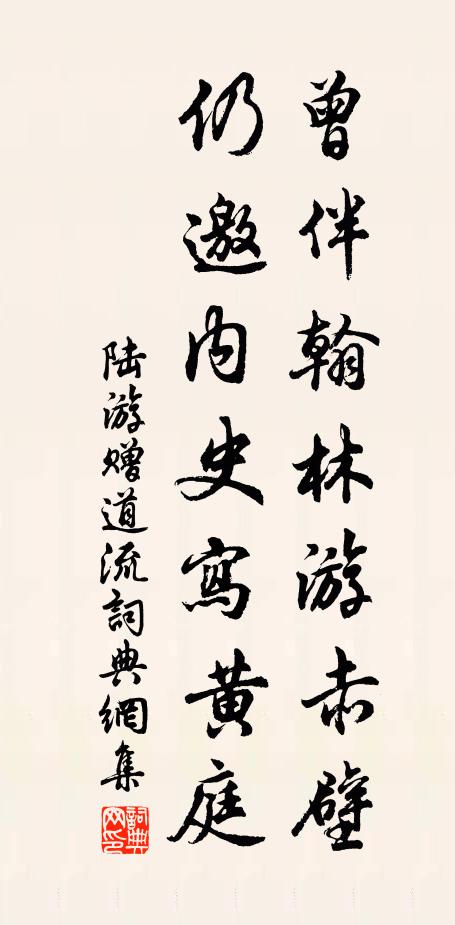 曾伴翰林游赤壁
仍邀內史寫黃庭
陆游赠道流詞典網集
詞典網印